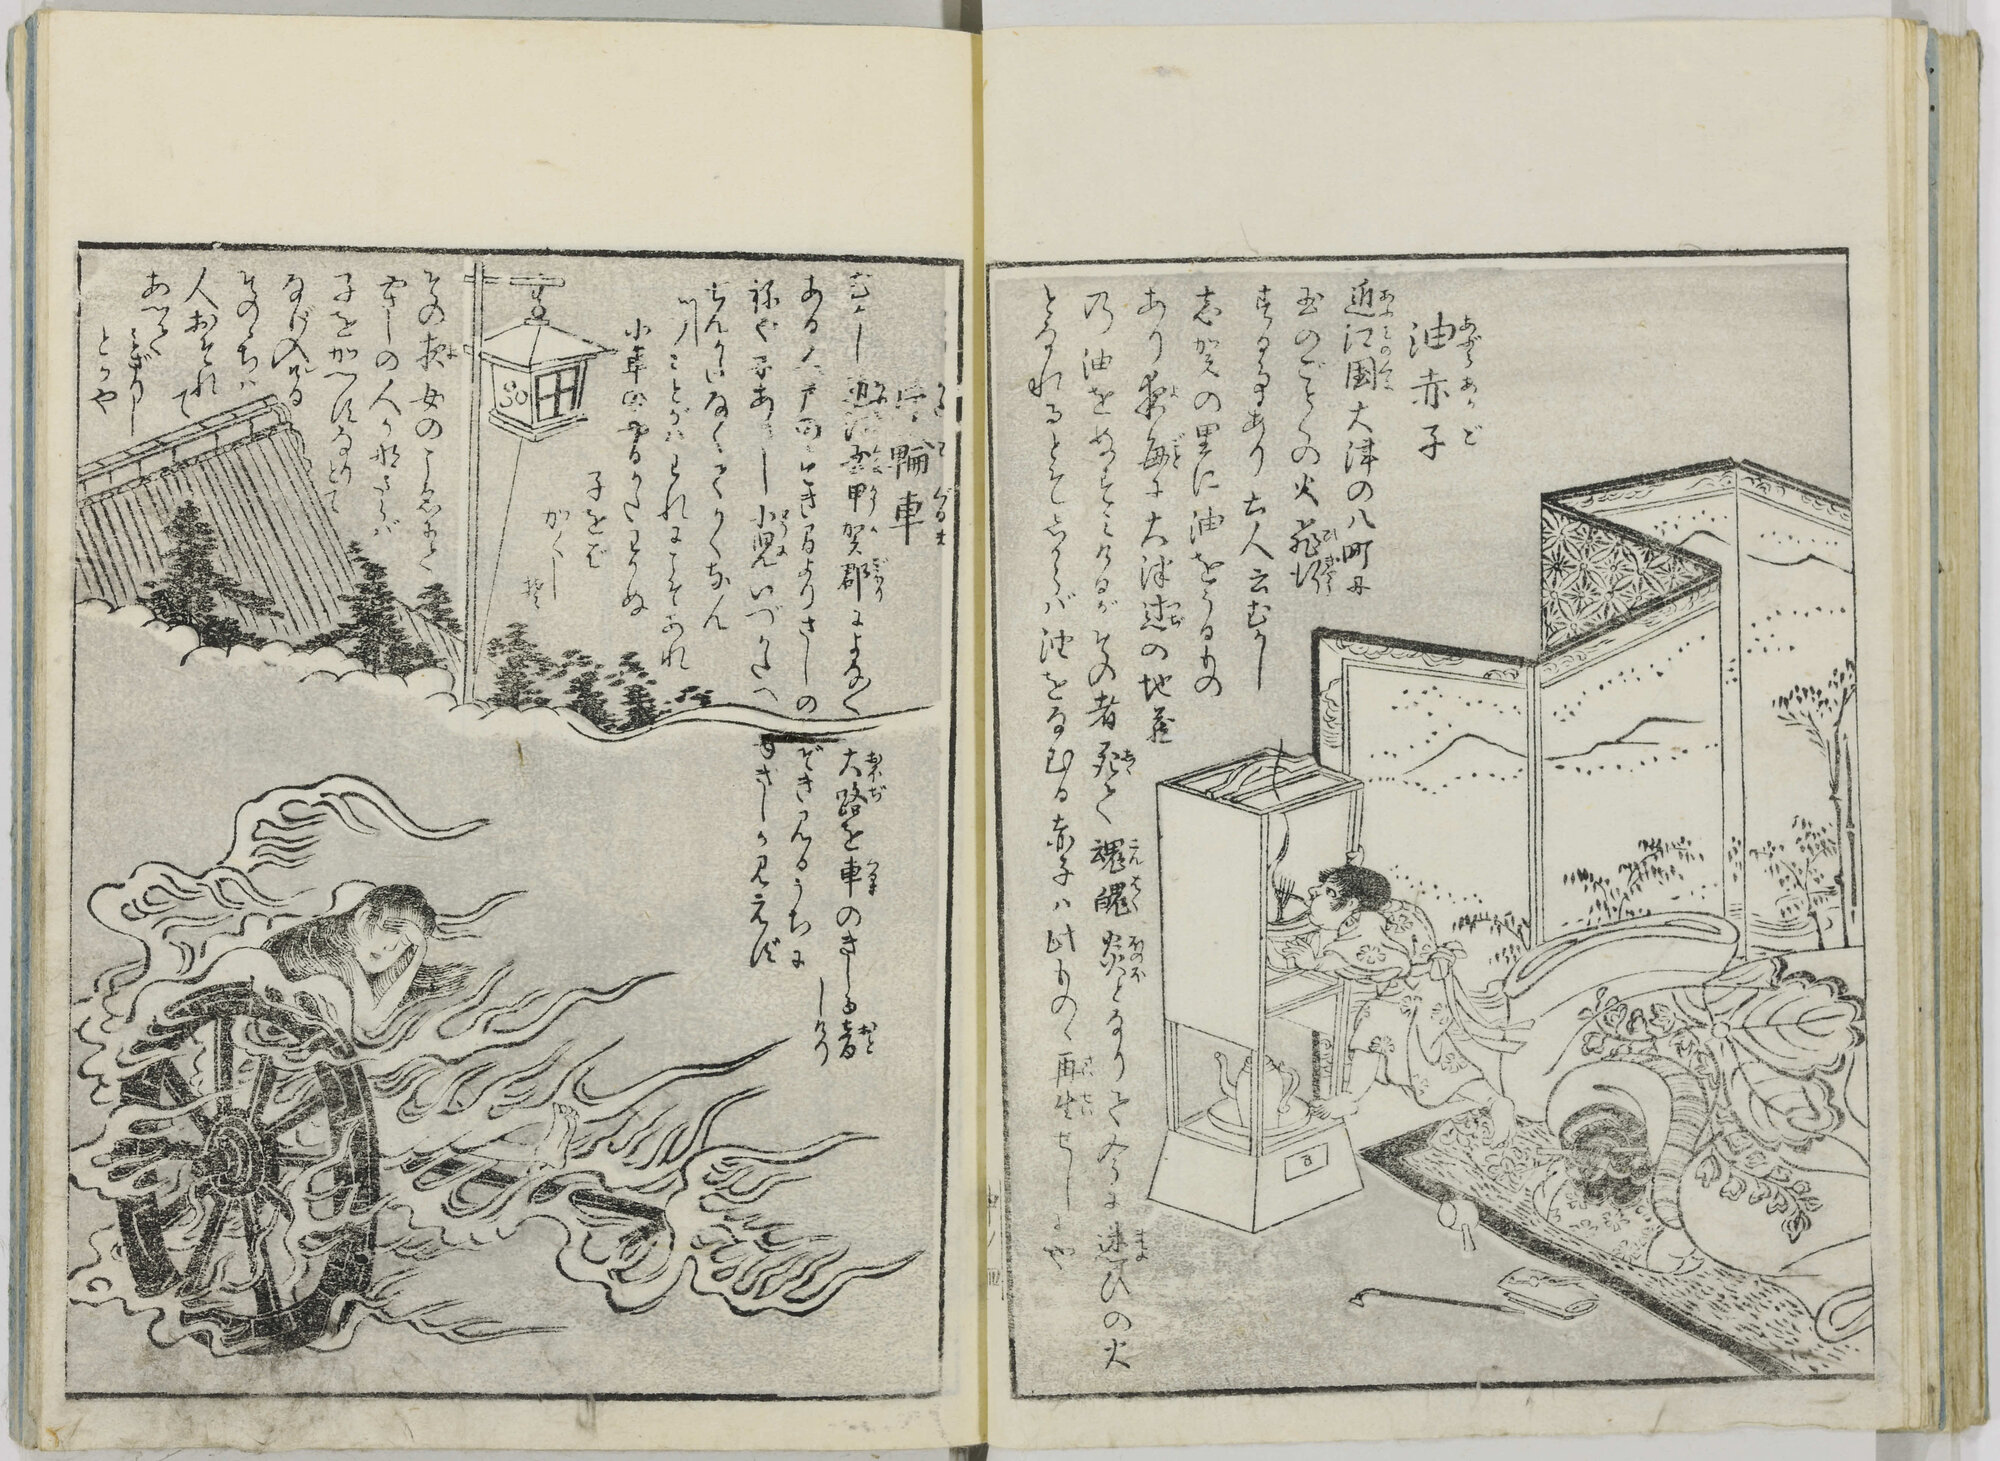 油赤子
近江国大津の八町に
玉のごとくの火飛行
する事あり土人云むかし
志賀の里に油をうるもの
あり夜毎に大津辻の地蔵
の油をぬすみけるがその者死て魂魄炎となりて今に迷ひの火
となれるとぞしからば油をなむる赤子ハ此ものゝ再生せしにや
片輪車
むかし近江国甲賀郡によなよな大路を車のきしる音しけり
ある人戸のすき間よりさしのぞき見るうちに
ねやにありし小児いづかたへゆきしか見えず
せんかたなくてかくなん
つみとがハわれにこそあれ
小車のやるかたわかぬ
子をば
かくしそ
その夜女のこゑにて
やさしの人かなさらバ
子をかへすなりとて
なげ入ける
そのゝちハ
人おそれて
あへて
みざりし
とかや